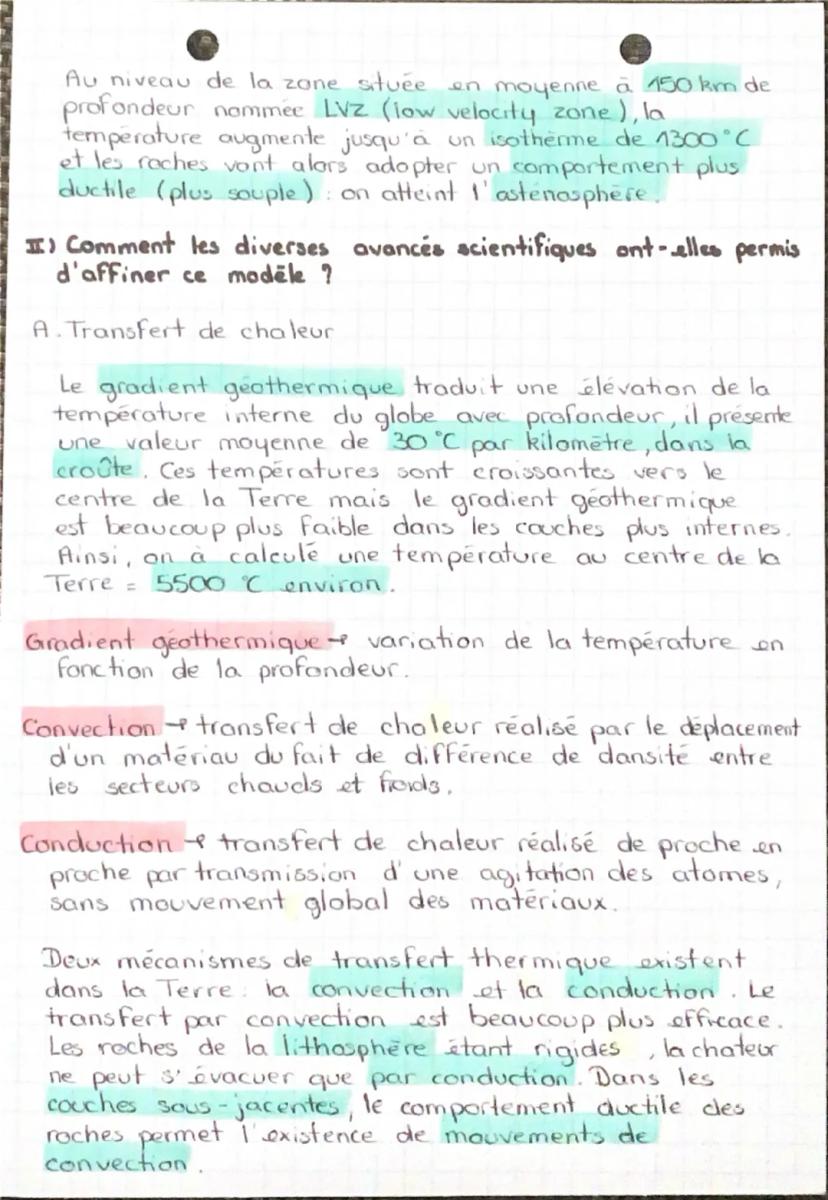 Au niveau de la zone située en moyenne à 150 km de
profondeur nommée LVZ (low velocity zone), la
température augmente jusqu'à un isotherme de 1300 °C
et les roches vont alors adopter un comportement plus
ductile (plus souple) : on atteint l'asténosphère.
II) Comment les diverses avancés scientifiques ont-elles permis
d'affiner ce modèle ?
A. Transfert de chaleur
Le gradient géothermique traduit une élévation de la
température interne du globe avec profondeur, il présente
une valeur moyenne de 30 °C par kilomètre, dans la
croûte. Ces températures sont croissantes vers le
centre de la Terre mais le gradient géothermique
est beaucoup plus faible dans les couches plus internes.
Ainsi, on à calculé une température au centre de la
Terre = 5500 °C environ.
Gradient géothermique → variation de la température en
fonction de la profondeur.
Convection → transfert de chaleur réalisé par le déplacement
d'un matériau du fait de différence de dansité entre
les secteurs chauds et froids.
Conduction → transfert de chaleur réalisé de proche en
proche par transmission d'une agitation des atomes,
sans mouvement global des matériaux.
Deux mécanismes de transfert thermique existent
dans la Terre : la convection et la conduction. Le
transfert par convection est beaucoup plus efficace.
Les roches de la lithosphère étant rigides, la chaleur
ne peut s'évacuer que par conduction. Dans les
couches sous-jacentes, le comportement ductile des
roches permet l'existence de mouvements de
convection.